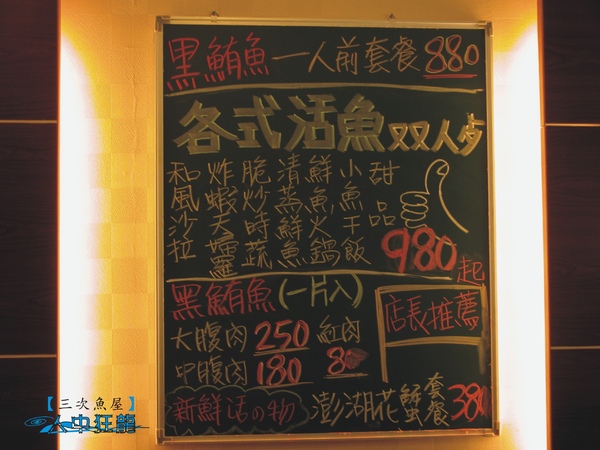 黑鮪魚 一人前套餐 880
各式活魚 双双人歺
和炸脆清鮮小甜
風蝦炒蒸魚魚品
沙天時鮮火干
拉 蔬魚鍋飯
980起
黑鮪魚(一片入)
大腹肉 250 紅肉
中腹肉 180 80
店長推薦
新鮮活の物 澎湖花蟹套餐 380
【三次魚屋】
人中狂龍